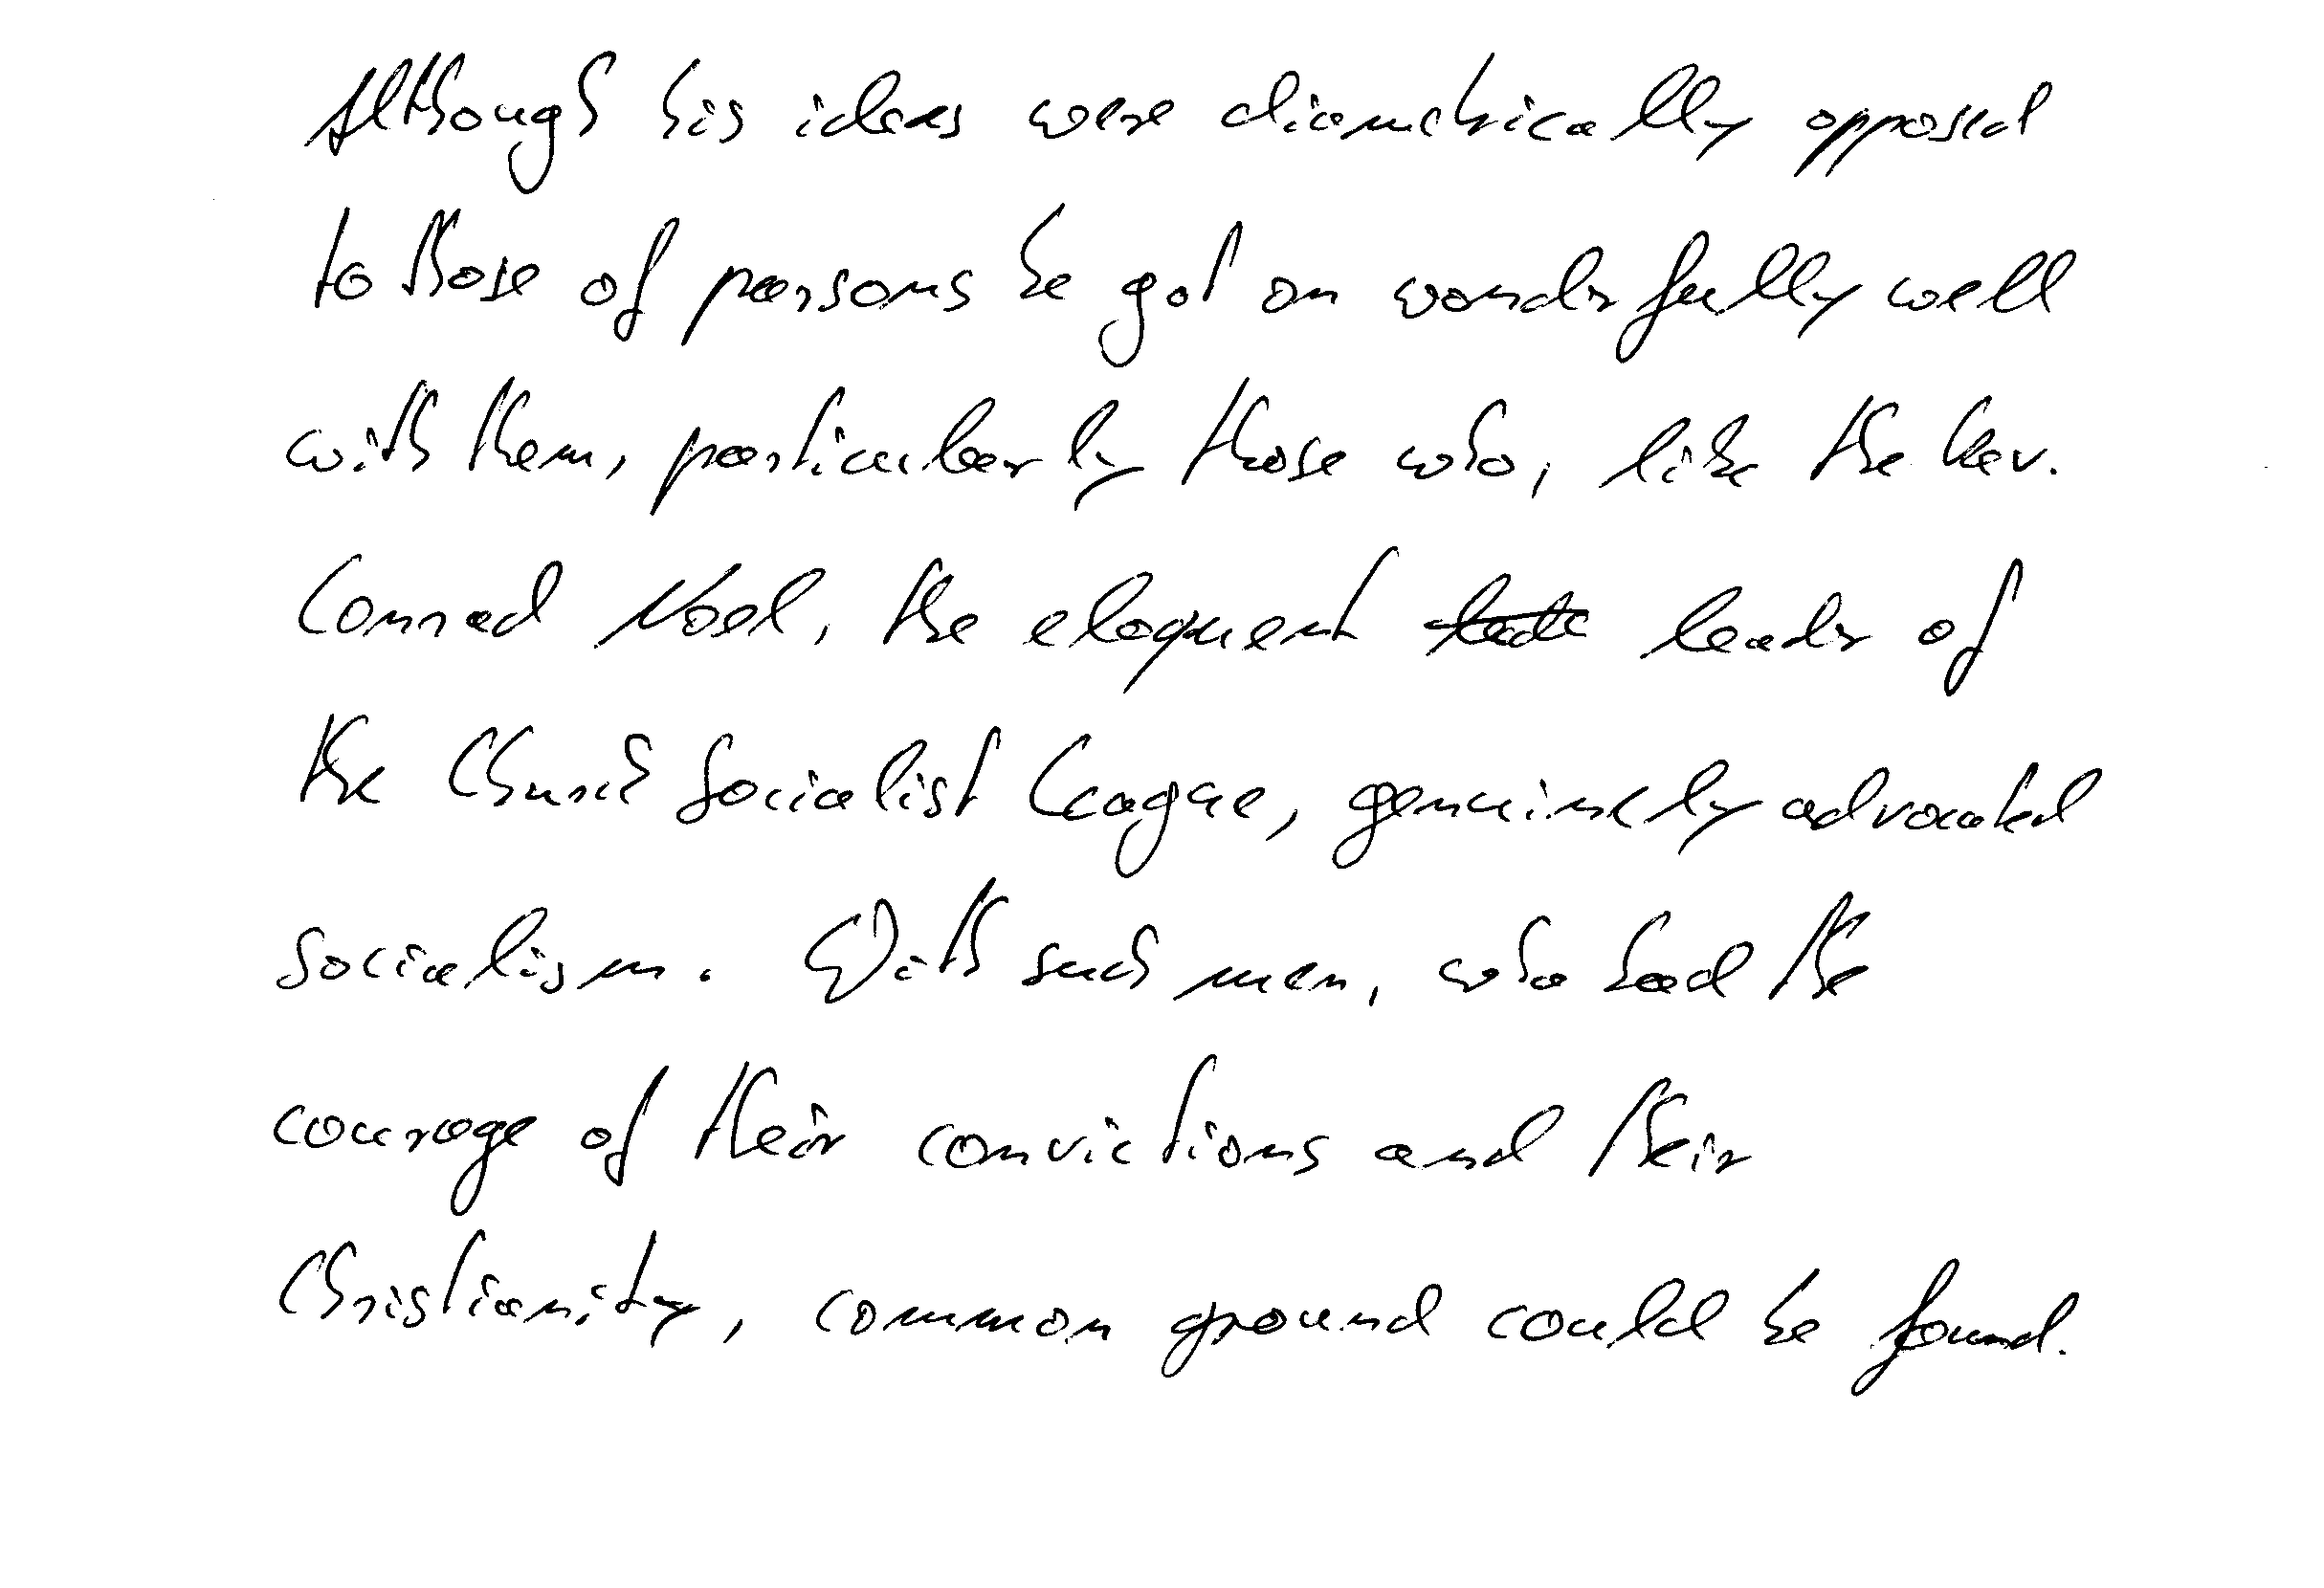 Although his ideas were diametrically opposed
to those of parsons he got on wonderfully well
with them, particularly those who, like the Rev.
Conrad Noel, the eloquent leader of
the Church Socialist League, genuinely advocated
socialism. With such men, who had the
courage of their convictions and their
Christianity, common ground could be found.